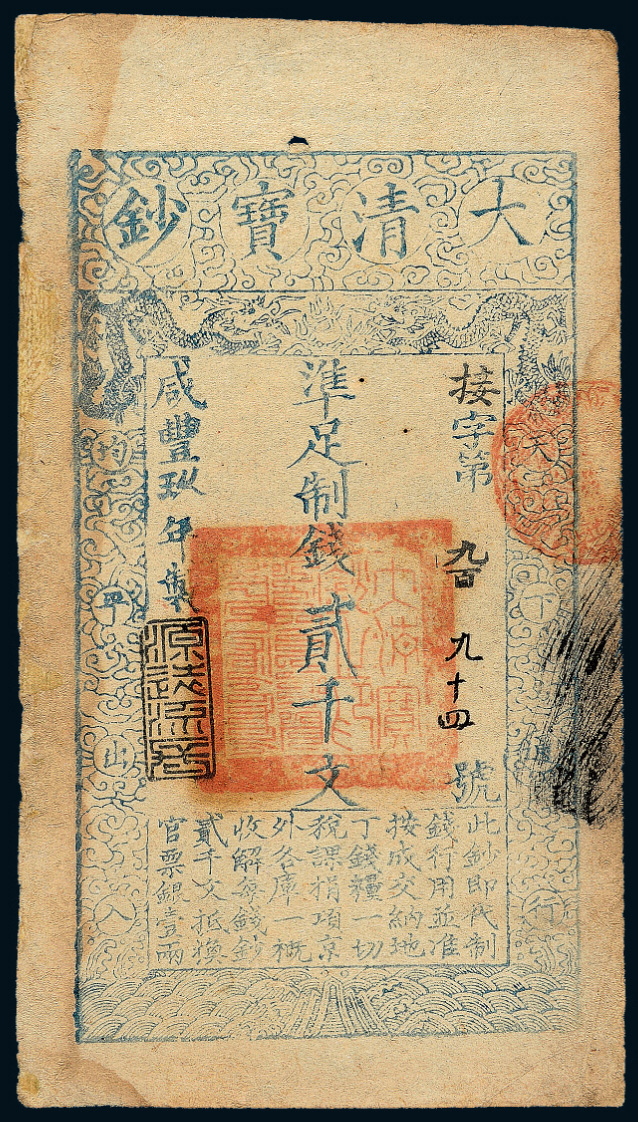 大清寶鈔
天下通行
接字第九百九十四號
準足制錢貳千文
咸豐玖年製
均平出入
此鈔即代制
錢行用並准
按成交納地
丁錢糧一切
稅課捐項京
外各庫一概
收解每錢鈔
貳千文抵換
官票銀壹兩